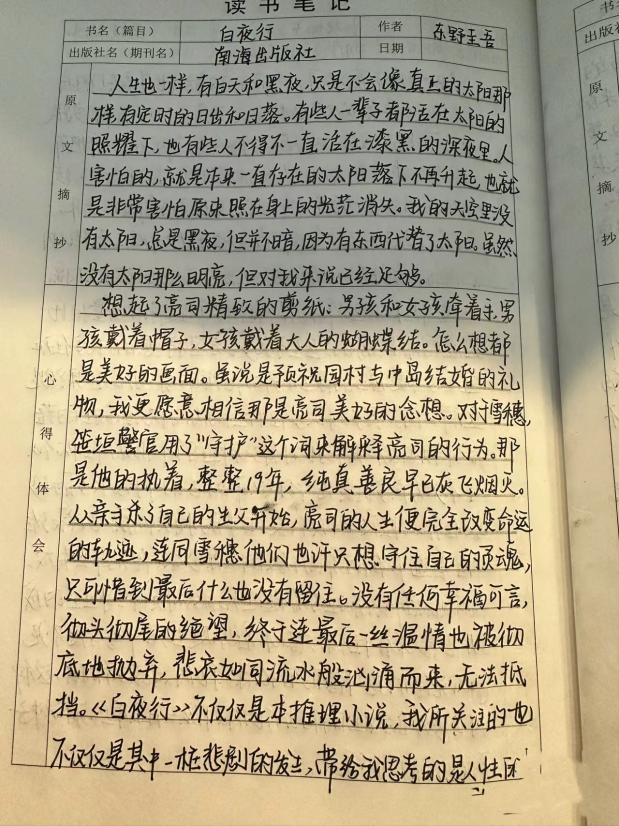 读书笔记
书名（篇目） 白夜行 作者 东野圭吾
出版社名（期刊名） 南海出版社 日期
原文摘抄
人生也一样，有白天和黑夜，只是不会像真正的太阳那
样有定时的日出和日落。有些人一辈子都活在太阳的
照耀下，也有些人不得不一直活在漆黑的深夜里。人
害怕的，就是本来一直存在的太阳落下不再升起，也就
是非常害怕原来照在身上的光芒消失。我的天空里没
有太阳，总是黑夜，但并不暗，因为有东西代替了太阳。虽然
没有太阳那么明亮，但对我来说已经足够。
心得体会
想起了亮司精致的剪纸：男孩和女孩牵着手，男
孩戴着帽子，女孩戴着大人的蝴蝶结。怎么想都
是美好的画面。虽说是预祝园村与中岛结婚的礼
物，我更愿意相信那是亮司美好的念想。对于雪穗，
笹垣警官用了“守护”这个词来解释亮司的行为。那
是他的执着，整整19年，纯真善良早已灰飞烟灭。
从亲手杀了自己的生父开始，亮司的人生便完全改变命运
的轨迹，连同雪穗他们也许只想守住自己的灵魂，
只可惜到最后什么也没有留住。没有任何幸福可言，
彻头彻尾的绝望，终于连最后一丝温情也被彻
底地抛弃，悲哀如同流水般汹涌而来，无法抵
挡。《白夜行》不仅仅是本推理小说，我所关注的也
不仅仅是其中一桩悲剧的发生，带给我思考的是人性
书
出版社
原文摘抄